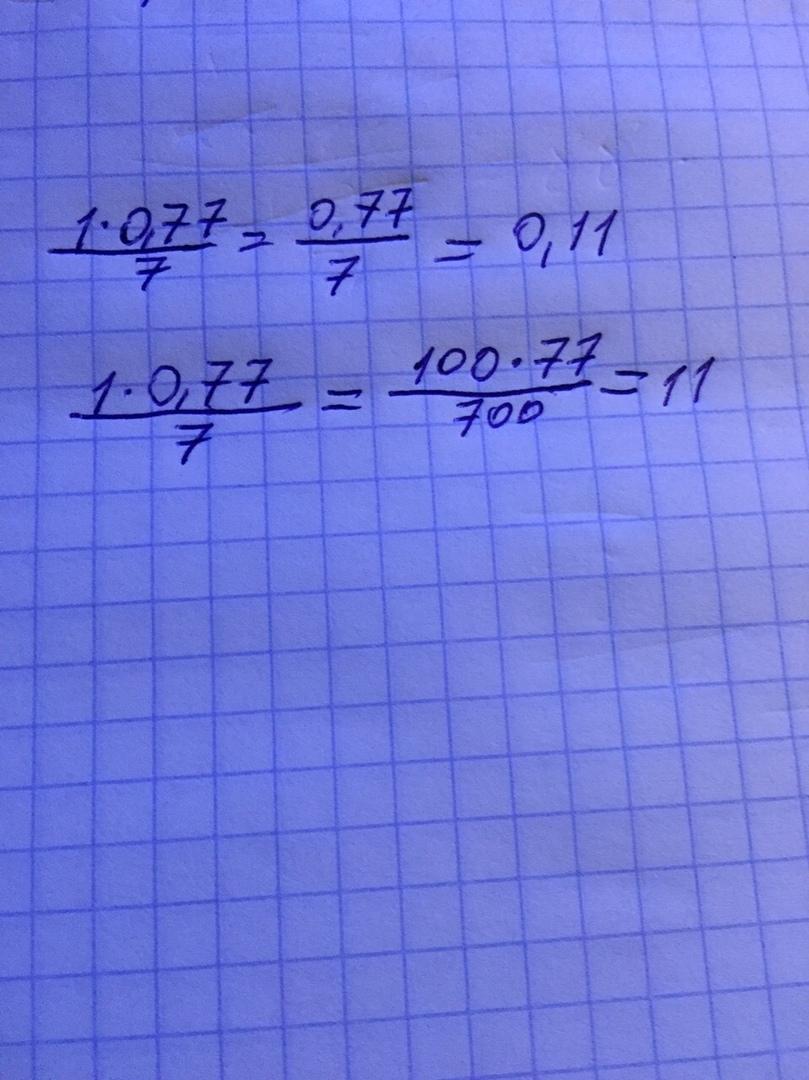 1·0,77/7 = 0,77/7 = 0,11
1·0,77/7 = 100·77/700 = 11